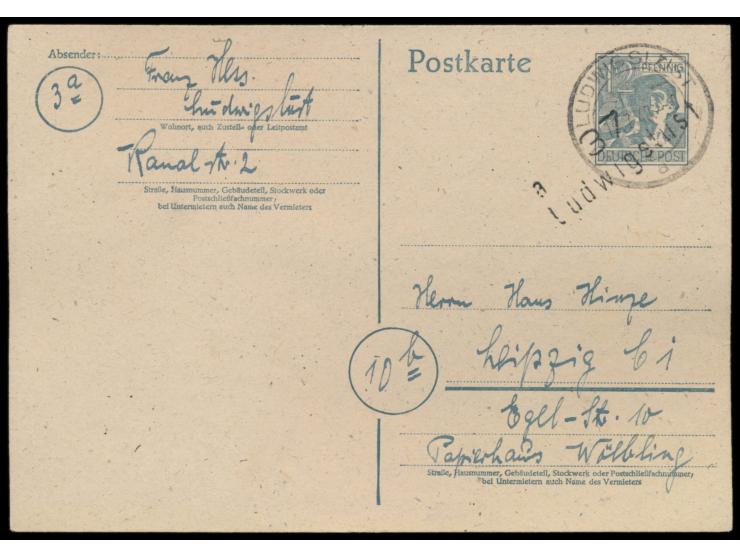 Absender: Franz Hess.
3a
Ludwigslust
Wohnort, auch Zustell- oder Leitpostamt
Kanal-str. 2
Straße, Hausnummer, Gebäudeteil, Stockwerk oder
Postschließfachnummer;
bei Untermietern auch Name des Vermieters
Postkarte
PFENNIG
LUDWIGSLUST
DEUTSCHE POST
a
3
Ludwigslust
Herrn Hans Hinze
10 b
Leipzig C 1
Egel-Str. 10
Papierhaus Wölbling
Straße, Hausnummer, Gebäudeteil, Stockwerk oder Postschließfachnummer;
bei Untermietern auch Name des Vermieters